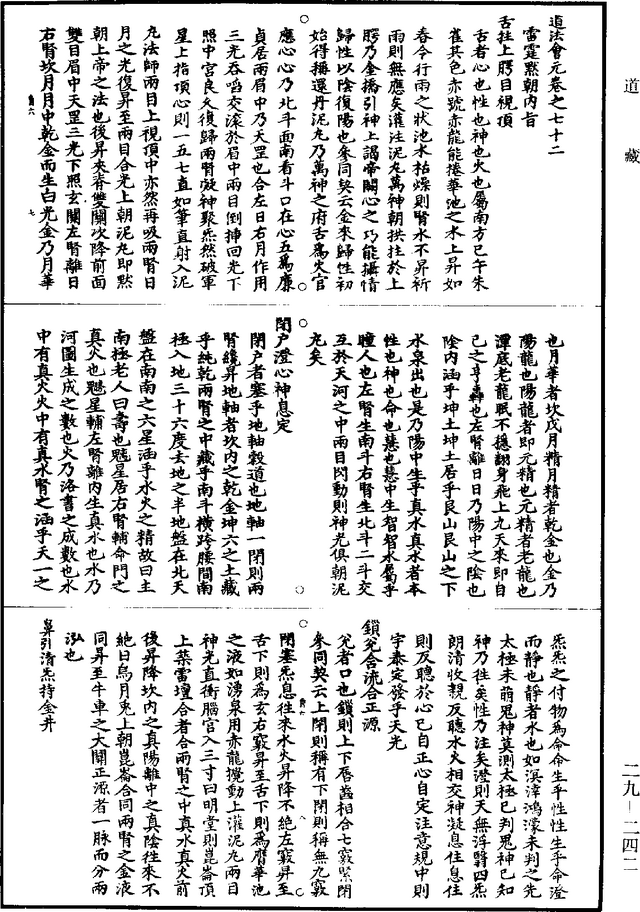 道藏
二九—二四二
道法會元卷之七十二
雷霆默朝內旨
舌拄上腭目視頂
舌者心也性也神也火也屬南方己午朱
雀其色赤號赤龍能捲華池之水上昇如
春令行雨之狀池水枯燥則腎水不昇祈
雨則無應矣灌注泥丸萬神朝拱拄於上
腭乃金橋引神上謁帝闕心之巧能攝情
歸性以陰復陽也參同契云金來歸性初
始得稱還丹泥丸乃萬神之府舌爲火官
應心心乃北斗面南看斗口在心五爲廉
貞居兩眉中乃天罡也合左日右月作用
三光吞啗交滾於眉中兩目倒掃回光下
照中宮良久復歸兩腎凝神聚炁然破軍
星上指頂心則一五七直如筆直射入泥
丸法師兩目上視頂中亦然再吸兩腎日
月之光復昇至兩目合光上朝泥丸即默
朝上帝之法也後昇夾脊雙關次降前面
雙目眉中天罡三光下照玄關左腎離日
右腎坎月月中乾金而生白光金乃月華
也月華者坎戊月精月精者乾金也金乃
陽龍也陽龍者即元精也元精者老龍也
潭底老龍眠不穩翻身飛上九天來即自
己之亨轟也左腎離日日乃陽中之陰也
陰內涵乎坤土坤土居乎艮山艮山之下
水泉出也是乃陽中生乎真水真水者本
性也神也命也慧也慧中生智智水屬乎
瞳人也左腎生南斗右腎生北斗二斗交
互於天河之中兩目閃動則神光俱朝泥
丸矣
閉戶澄心神息定
閉戶者塞乎地軸穀道也地軸一閉則兩
腎纔昇地軸者坎內之乾金坤六之土藏
乎純乾兩腎之中藏乎南斗橫跨腰間南
極入地三十六度去地之半地盤在北天
盤在南南之六星涵乎水火之精故曰主
南極老人曰壽也魁星居右腎輔命門之
真火也魒星輔左腎離內生真水也水乃
河圖生成之數也火乃洛書之成數也水
中有真火火中有真水腎之涵乎天一之
炁炁之付物爲命命生乎性性生乎命澄
而靜也靜者水也如溟滓鴻濛未判之先
太極未萌鬼神莫測太極已判鬼神已知
神乃往矣性乃注矣澄則天無浮翳四炁
朗清收視反聽水火相交神凝息住息住
則反聽於心已自正心自定注意規中則
宇泰定發乎天光
鎖兌合流合正源
兌者口也鎖則上下唇齒相合七竅緊閉
參同契云上閉則稱有下閉則稱無九竅
閉塞炁息往來水火昇降不絕左竅昇至
舌下則爲玄右竅昇至舌下則爲膺華池
之液如湧泉用赤龍攪動上灌泥丸兩目
神光直衝腦宮入三寸曰明堂則崑崙頂
上築雷壇合者合兩腎之中真水真火前
後昇降坎內之真陽離中之真陰往來不
絕日烏月兎上朝崑崙合同兩腎之金液
同昇至牛車之大關正源者一脉而分兩
泓也
鼻引清炁持金井